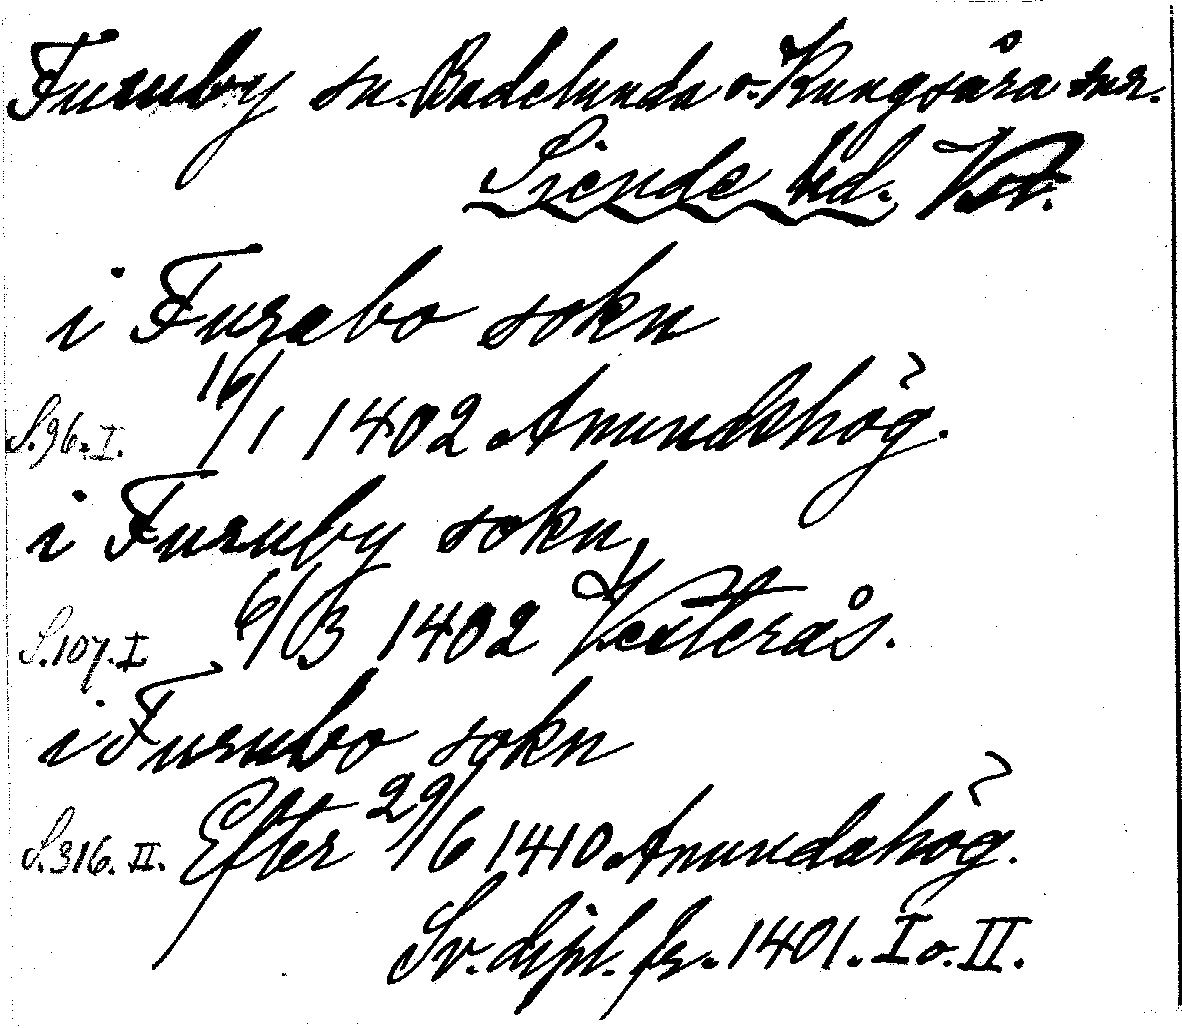 Furuby sn. Badelunda o. Kungsåra snr.
Siende hd. Vstm.
i Furabo sokn
S. 96. I. 16/1 1402 Amundshög.
i Furuby sokn
S. 107. I 6/3 1402 Vesterås.
i Furubo sokn
S. 316. II. Efter 29/6 1410 Amundahög.
Sv. dipl. fr. 1401. I o. II.